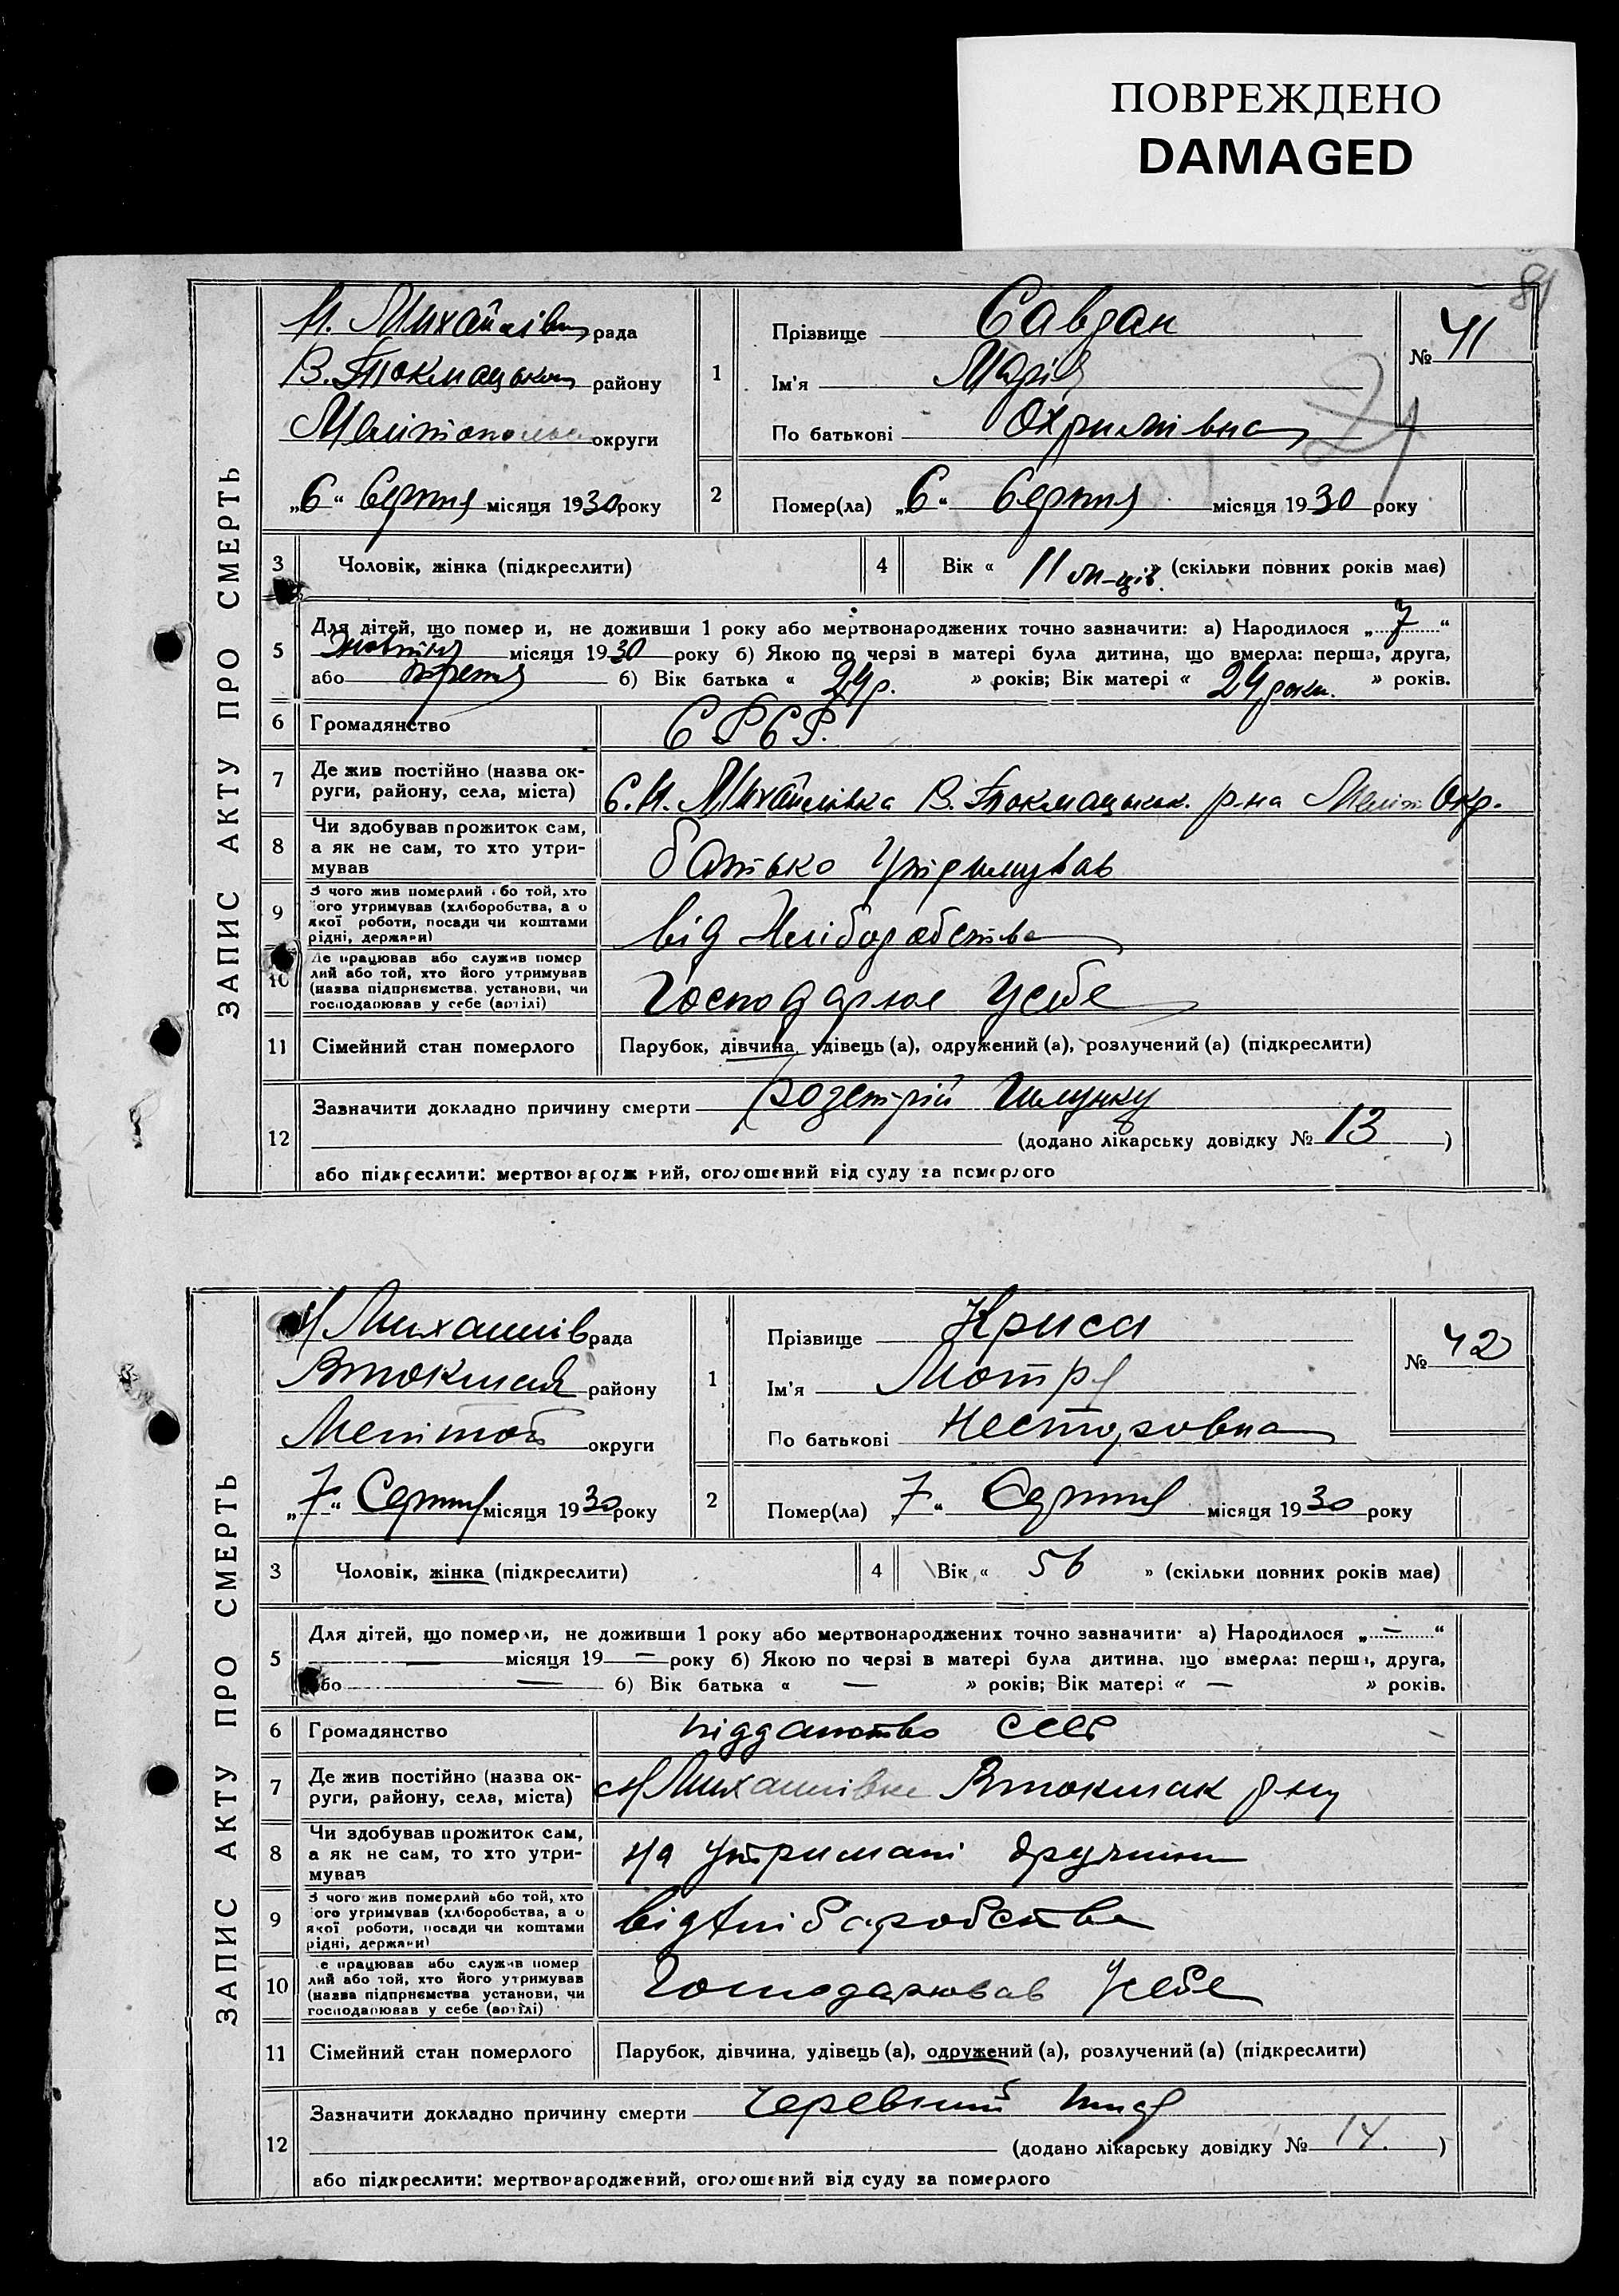 ПОВРЕЖДЕНО
DAMAGED
81
ЗАПИС АКТУ ПРО СМЕРТЬ
Н. Михайлівськ рада
В. Токмацьком району
Мелітопольсь округи
„6“ Серпня місяця 1930 року
1
Прізвище Савдан
Ім'я Марія
По батькові Охримівна
№ 41
2
Помер(ла) „6“ Серпня місяця 1930 року
3 Чоловік, жінка (підкреслити)
4 Вік « 11 м-ців. » (скільки повних років має)
5
Для дітей, що помер и, не доживши 1 року або мертвонароджених точно зазначити: а) Народилося „7“
Жовтня місяця 1930 року б) Якою по черзі в матері була дитина, що вмерла: перша, друга,
або третя б) Вік батька « 24 р. » років; Вік матері « 24 роки. » років.
6 Громадянство СРСР.
7 Де жив постійно (назва ок-
руги, району, села, міста) С. Н. Михайлівка В. Токмацьк. р-на Меліт Окр.
8 Чи здобував прожиток сам,
а як не сам, то хто утри-
мував батько Утримував
9 З чого жив померлий або той, хто
його утримував (хліборобства, а о
якої роботи, посади чи коштами
рідні, держави) від Хліборобства
10 Де працював або служив помер
лий або той, хто його утримував
(назва підприємства, установи, чи
господарював у себе (артілі) Господарює Усебе
11 Сімейний стан померлого Парубок, дівчина, удівець (а), одружений (а), розлучений (а) (підкреслити)
12
Зазначити докладно причину смерти Шлунку
(додано лікарську довідку № 13)
або підкреслити: мертвонародж ний, оголошений від суду за померлого
ЗАПИС АКТУ ПРО СМЕРТЬ
Н Михайлів рада
Втокмак району
Мелітоп округи
„7“ Серпня місяця 1930 року
1
Прізвище Криса
Ім'я Мотря
По батькові Несторовна
№ 42
2
Помер(ла) „7“ Серпня місяця 1930 року
3 Чоловік, жінка (підкреслити)
4 Вік « 56 » (скільки повних років має)
5
Для дітей, що померли, не доживши 1 року або мертвонароджених точно зазначити: а) Народилося „—“
— місяця 19 — року б) Якою по черзі в матері була дитина, що вмерла: перша, друга,
або — б) Вік батька « — » років; Вік матері « — » років.
6 Громадянство підданство СССР
7 Де жив постійно (назва ок-
руги, району, села, міста) сН Михайлівка Втокмак р-ну
8 Чи здобував прожиток сам,
а як не сам, то хто утри-
мував На Утримані дружини
9 З чого жив померлий або той, хто
його утримував (хліборобства, а о
якої роботи, посади чи коштами
рідні, держави) від Хліборобства
10 е працював або служив помер
лий або той, хто його утримував
(назва підприємства установи, чи
господарював у себе (артілі) Господарював Усебе
11 Сімейний стан померлого Парубок, дівчина, удівець (а), одружений (а), розлучений (а) (підкреслити)
12
Зазначити докладно причину смерти Черевний тиф
(додано лікарську довідку № 14.)
або підкреслити: мертвонароджений, оголошений від суду за померлого